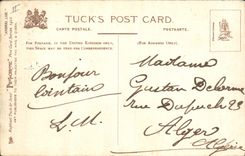 TUCK'S POST CARD
CARTE POSTALE.
POSTKARTE.
FOR POSTAGE IN THE UNITED KINGDOM ONLY, THIS SPACE MAY BE USED FOR CORRESPONDENCE.
(FOR ADDRESS ONLY)
Bonjour
lointain
L.M.
Madame
Gustan
rue Dupuch 23
Alger
Algérie